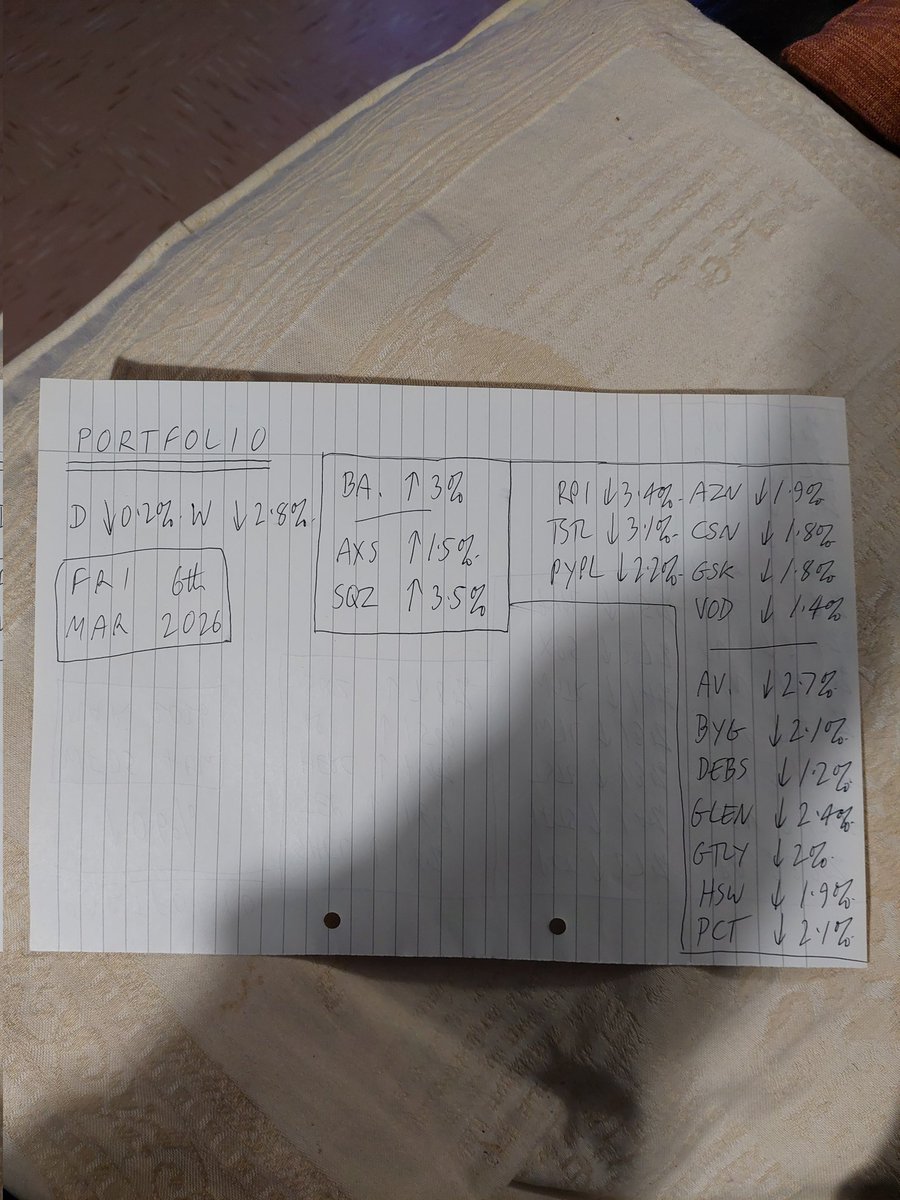 PORTFOLIO
D ↓0.2%. W ↓2.8%.
FRI 6th
MAR 2026
BA. ↑3%
AXS ↑1.5%.
SQZ ↑3.5%
RPI ↓3.4%.
TSTL ↓3.1%.
PYPL ↓2.2%.
AZN ↓1.9%
CSN ↓1.8%
GSK ↓1.8%
VOD ↓1.4%
AV. ↓2.7%.
BYG ↓2.1%.
DEBS ↓1.2%.
GLEN ↓2.4%.
GTLY ↓2%.
HSW ↓1.9%.
PCT ↓2.1%.